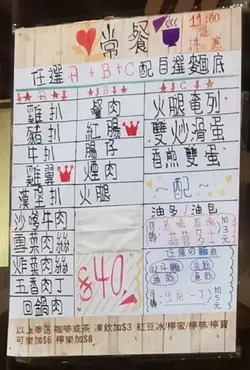 常餐
11:00
任選A+B+C配自選麵底
A
B
C
雞扒
餐肉
火腿奄列
豬扒
紅腸
雙炒滑蛋
牛扒
腸仔
香煎雙蛋
雞翼
煙肉
~配~
漢堡扒
火腿
油多/油包
沙嗲牛肉
雪菜肉絲
榨菜肉絲
$40
五香肉丁
回鍋肉
以上奉送咖啡或茶 凍飲加$3 紅豆冰/檸蜜/檸啡/檸寶
可樂加$6 檸樂加$8